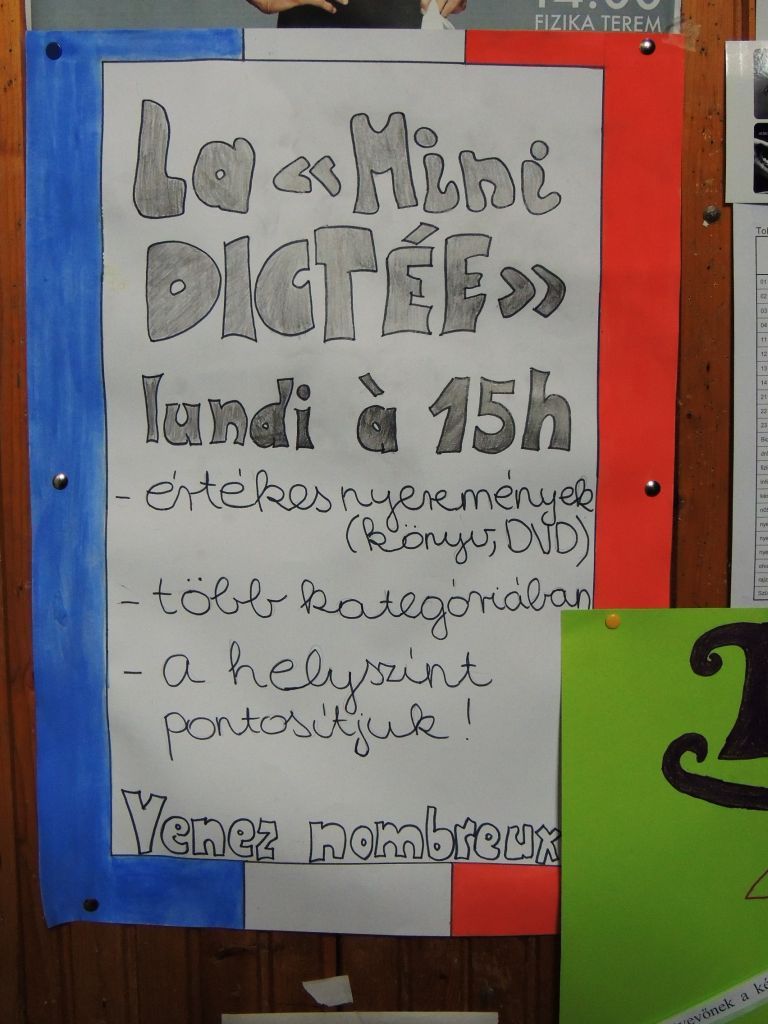 14:00
FIZIKA TEREM
La « Mini
DICTÉE »
lundi à 15h
- értékes nyeremények
(könyv, DVD)
- több kategóriában
- a helyszínt
pontosítjuk !
Venez nombreux